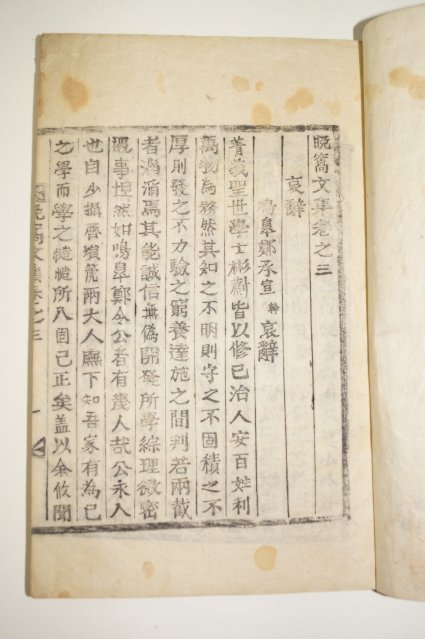 晩窩文集卷之三
哀辭
鳴皐鄭承宣榦哀辭
菁莪聖世學士彬蔚皆以修已治人安百姓利
萬物爲務然其知之不明則守之不固積之不
厚則發之不力驗之窮養達施之間判若兩截
者滔滔焉其能誠信無僞開發所學綜理微密
遇事坦然如鳴皐鄭令公者有幾人哉公永人
也自少攝齊塤篪兩大人廡下知吾家有爲已
之學而學之慥慥所入固已正矣盖以余攸聞
晩窩文集卷之三
一